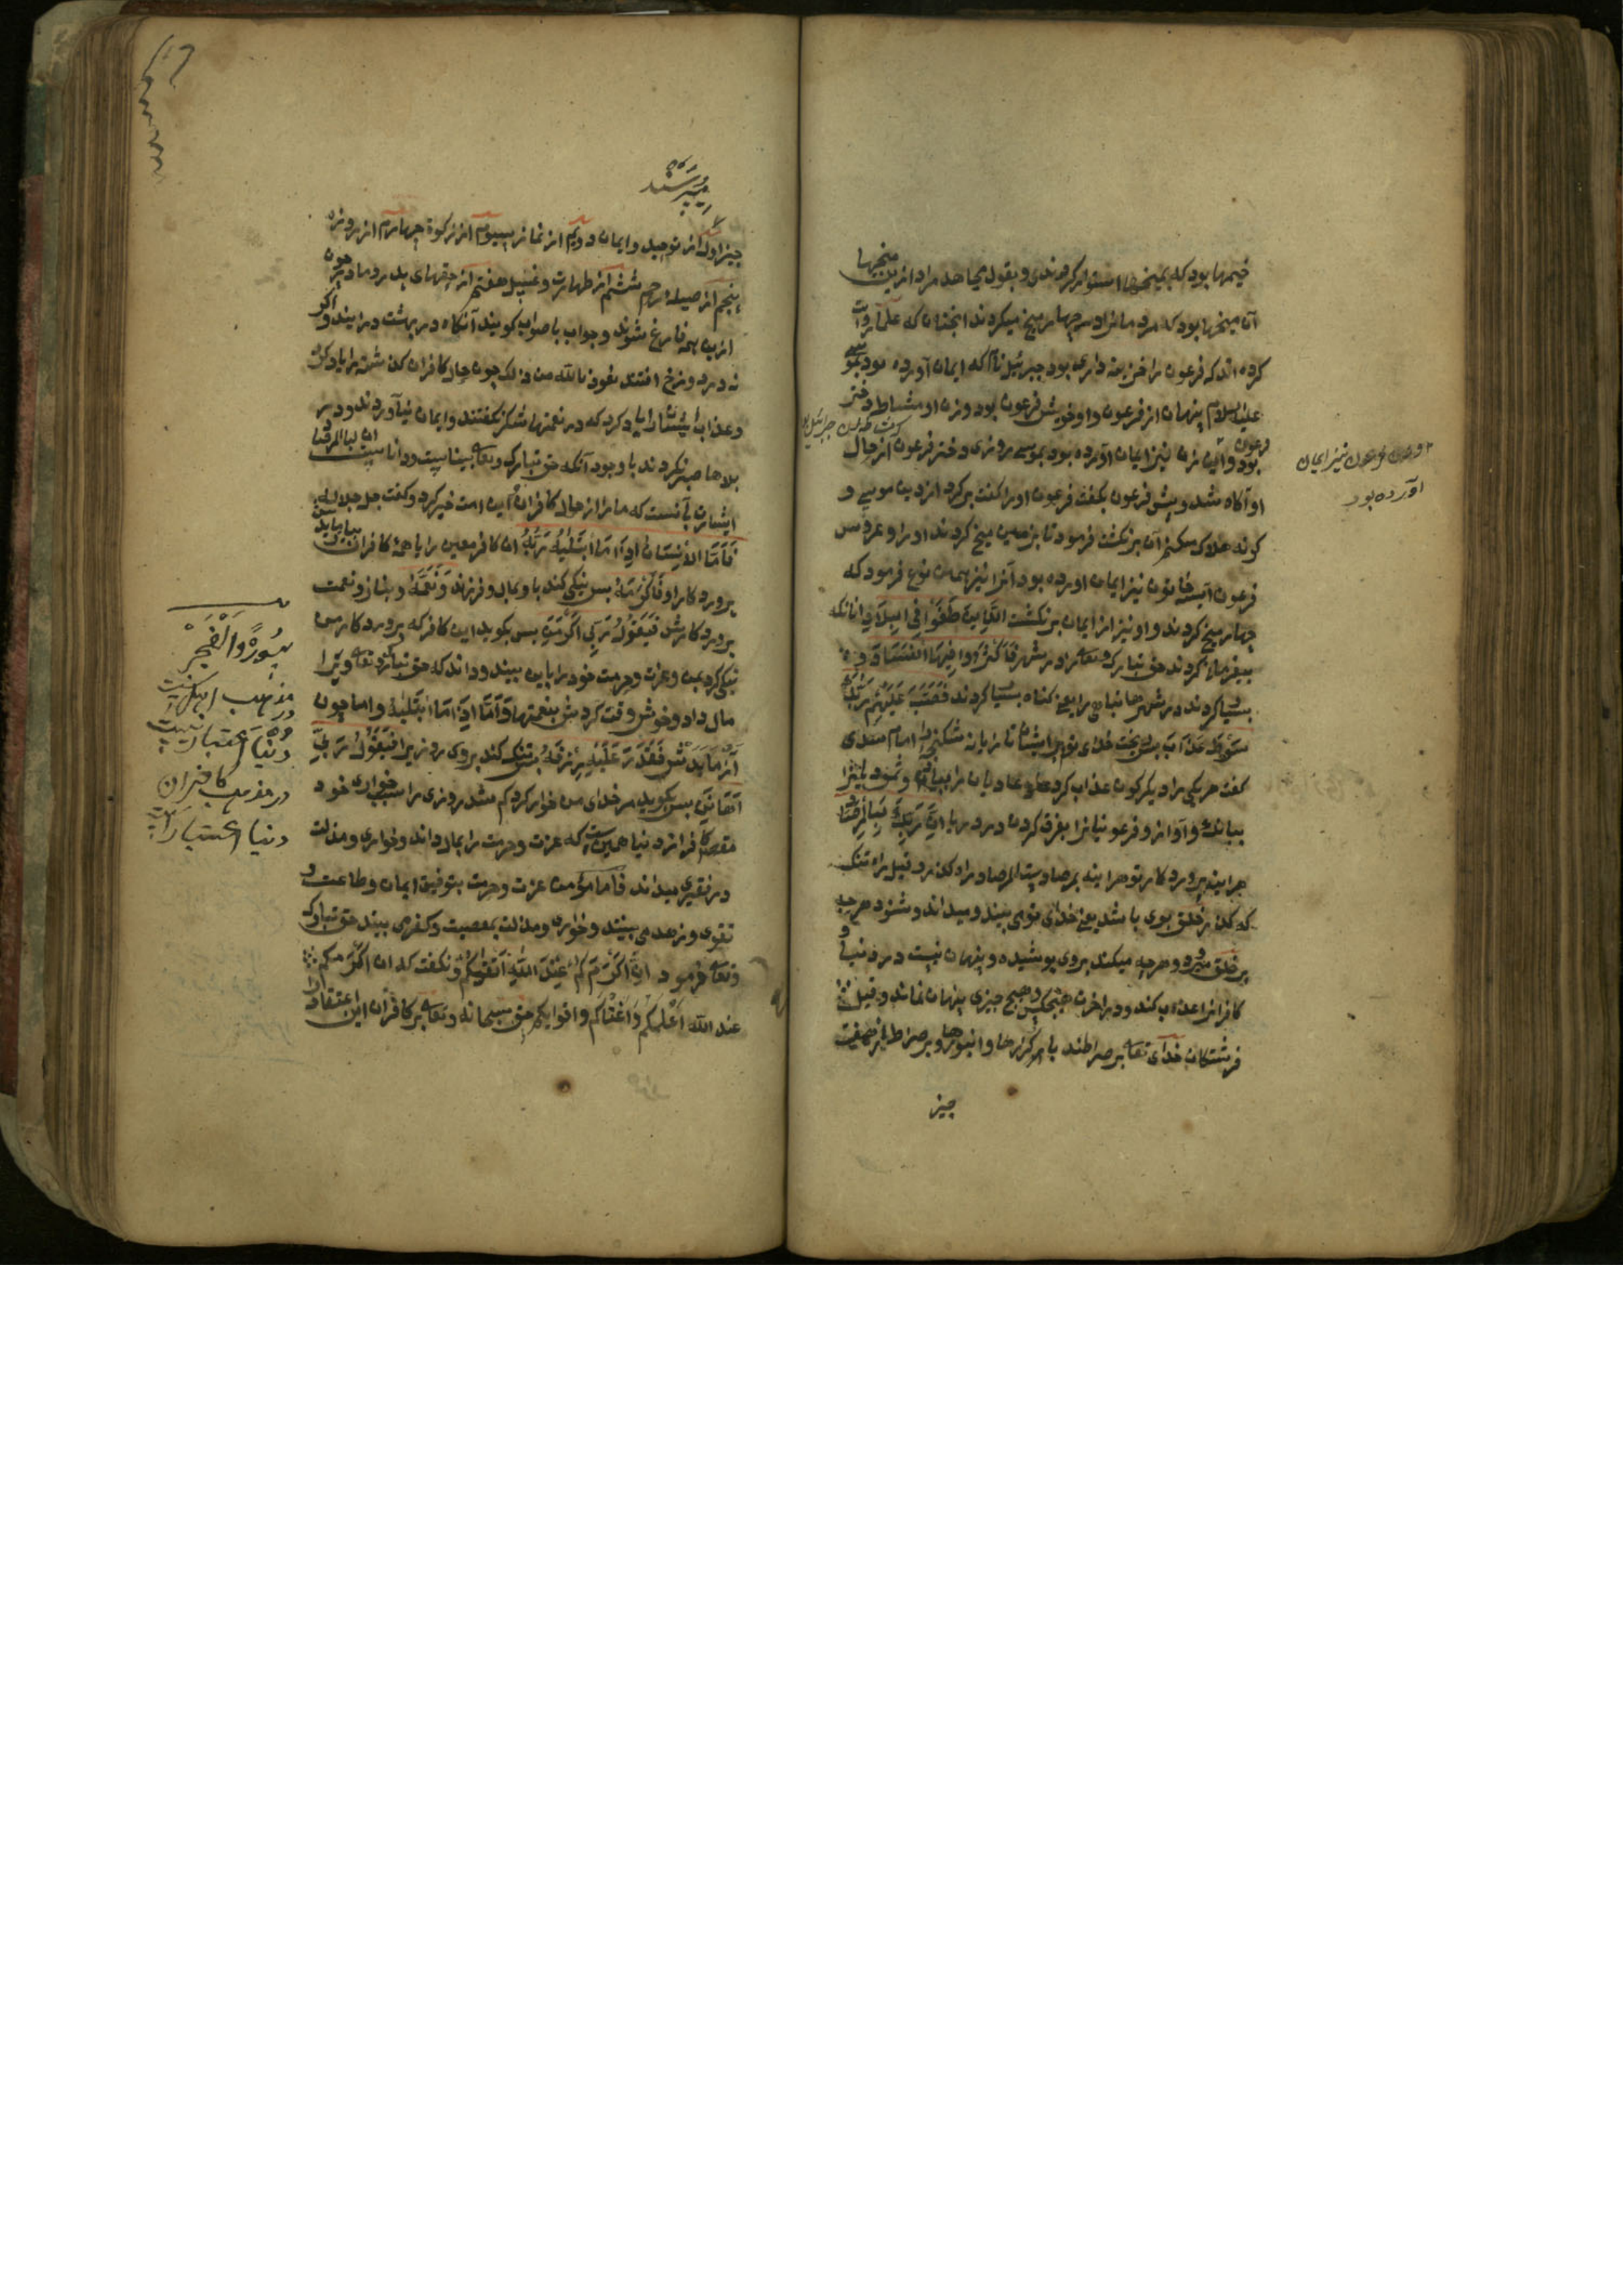 خیمها بود که بمیخها استوار کردندی و بقول مجاهد مراد ازین میخها
آن میخها بود که مردمانرا در چهار میخ میکردند انچنان که علما روایت
کرده اند که فرعون را خزینه داری بود جبرئیل نام که ایمان آورده بود بموسی
علیه السلام پنهان از فرعون و او خویش فرعون بود و زن او مشاطه دختر
فرعون
بود و این زن نیز ایمان آورده بود بموسی روزی دختر فرعون از حال
او آکاه شد و پیش فرعون بکفت فرعون اورا کفت برکرد از دین موسی و
کرنه هلاک میکنم آن برنکشت فرمود تا بزمین میخ کردند اورا و عروس
فرعون آسیه خاتون نیز ایمان اورده بود آنرا نیز همان نوع فرمود که
چهار میخ کردند و او نیز از ایمان برنکشت الذین طغوا فی البلاد انانکه
بیفرمانی کردند حق تبارک وتعالی را در شهر فاکثروا فیها الفساد پس
بسیار کردند در شهرها تباهی را یعنی کناه بسیار کردند فصب علیهم ربک
سوط عذاب پس ریخت خدای تو برایشان تازیانه شکنجه امام سعدی
کفت هر یکی را دیکرکون عذاب کرد عادیان را بباد و ثمود را
ببانک و آواز و فرعونیانرا بغرق کردن در دریا ان ربک لبالمرصاد
هراینه پروردکار تو هراینه بمرصاد است المرصاد راه کذر و قیل راه تنک
که کذر خلق بوی باشد یعنی خدای تو می بیند و میداند و شنود هر چه
بر خلق میرود و هر چه میکند بروی پوشیده و پنهان نیست در دنیا و
کافرانرا عذاب کند و در اخرت هیچکس و هیچ چیزی پنهان نماند و قیل
فرشتکان خدای تعالی بر صراطند با کرزها و انبوها و بر صراط از هفت
چیز
فرعون نیز ایمان
آورده بود
میپرسند
چیز اول از توحید و ایمان دویم از نماز سیوم از زکوة چهارم از روزه
پنجم از صیله رحم ششم از طهارت و غسل هفتم از حقهای پدر و مادر چون
ازین همه فارغ شوند و جواب با صواب کویند آنکاه در بهشت درایند و اکر
نه در دوزخ افتند نعوذ بالله من ذلک چون حال کافران کذشته را یاد کرد
و عذاب ایشانرا یاد کرد که در نعمتها شکر نکفتند و ایمان نیاوردند و در
بلاها صبر نکردند با وجود آنکه حق تبارک وتعالی بیناست و داناست ان ربک لبالمرصاد
ایشان آنست که مارا از حال کافران این امت خبر کرد و کفت جل جلاله
فاما الانسان اذا ما ابتلیه ربه ان کافر معین را یا همهٔ کافران
پروردکار او فاکرمه پس نیکی کند با و بمال و فرزند ونعمه و بناز و نعمت
پروردکارش فیقول ربی اکرمن پس بکوید این کافر که پروردکار من
نیکی کرد بمن و عزت و حرمت خود را باین بیند و داند که حق تبارک وتعالی ویرا
مال داد و خوش وقت کردش بنعمتها واما اذا ما ابتلیه و اما چون
آزمایدش فقدر علیه رزقه پس تنک کند بروی روزی را فیقول ربی
اهانن پس بکوید مر خدای من خوار کرد کم شد روزی را سبب خواری خود
مقصد کافر از دنیا همین است که عزت و حرمت را بمال داند و خواری و مذلت
در فقیری میداند فاما مؤمن عزت و حرمت بتوفیق ایمان و طاعت و
تقوی و زهد می بینند و خواری و مذلت بمعصیت و کفر می بیند حق تبارک
وتعالی فرمود ان اکرمکم عند الله اتقیکم و نکفت که ان اکرمکم
عند الله اعلمکم و اغناکم و اقوایکم حق سبحانه وتعالی بر کافران این اعتقاد را
سورة والفجر
در مذهب اهل سنت
دنیا اعتبار نیست
در مذهب کافران
دنیا اعتبار است